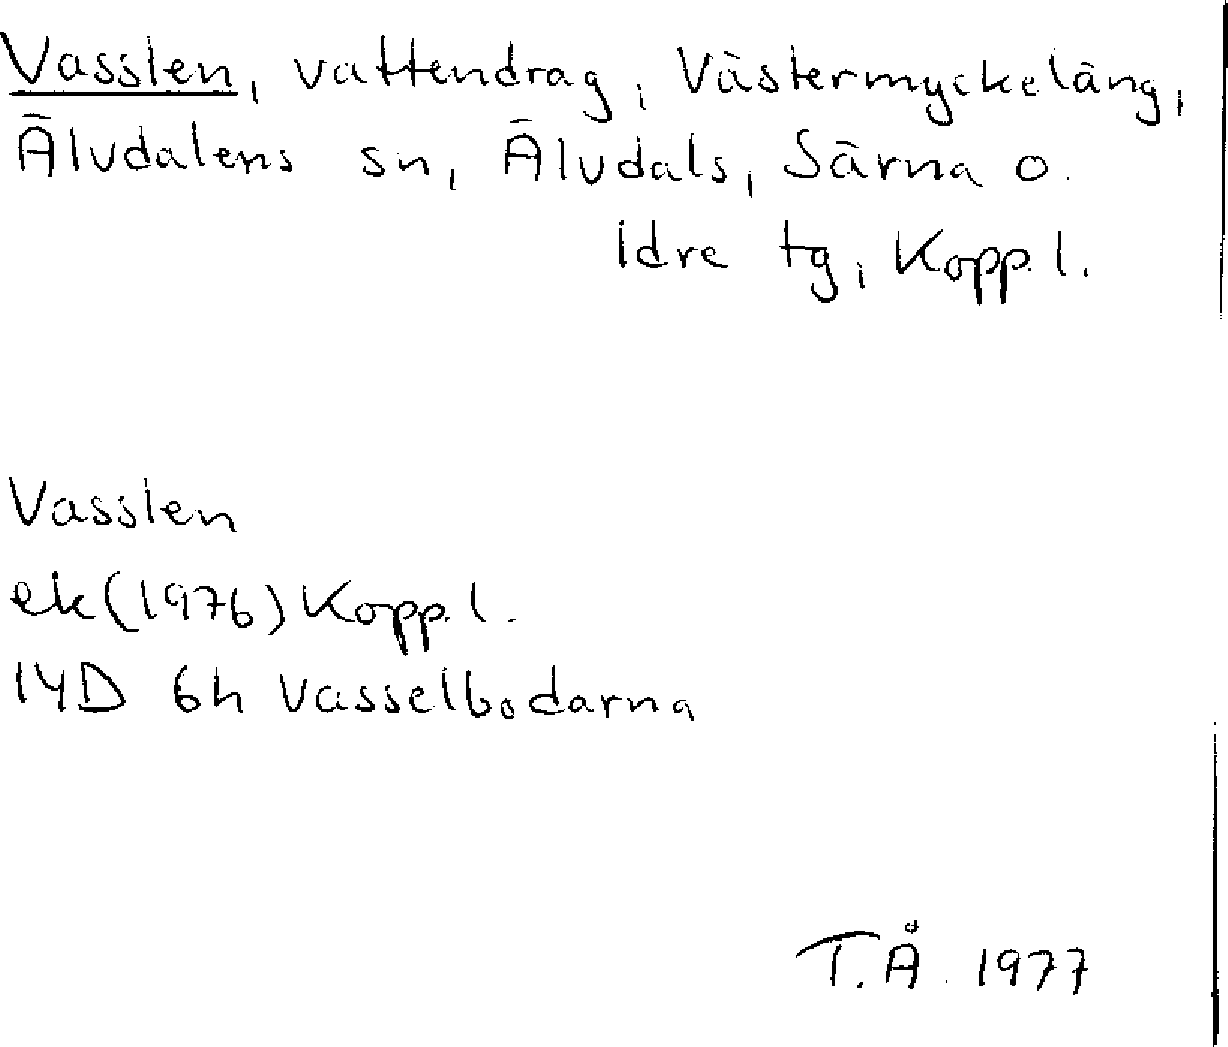 Vasslen, vattendrag, Västermyckeläng,
Älvdalens sn, Älvdals, Särna o.
Idre tg, Kopp. l.
Vasslen
ek (1976) Kopp. l.
14D 6h Vasselbodarna
T.Å. 1977